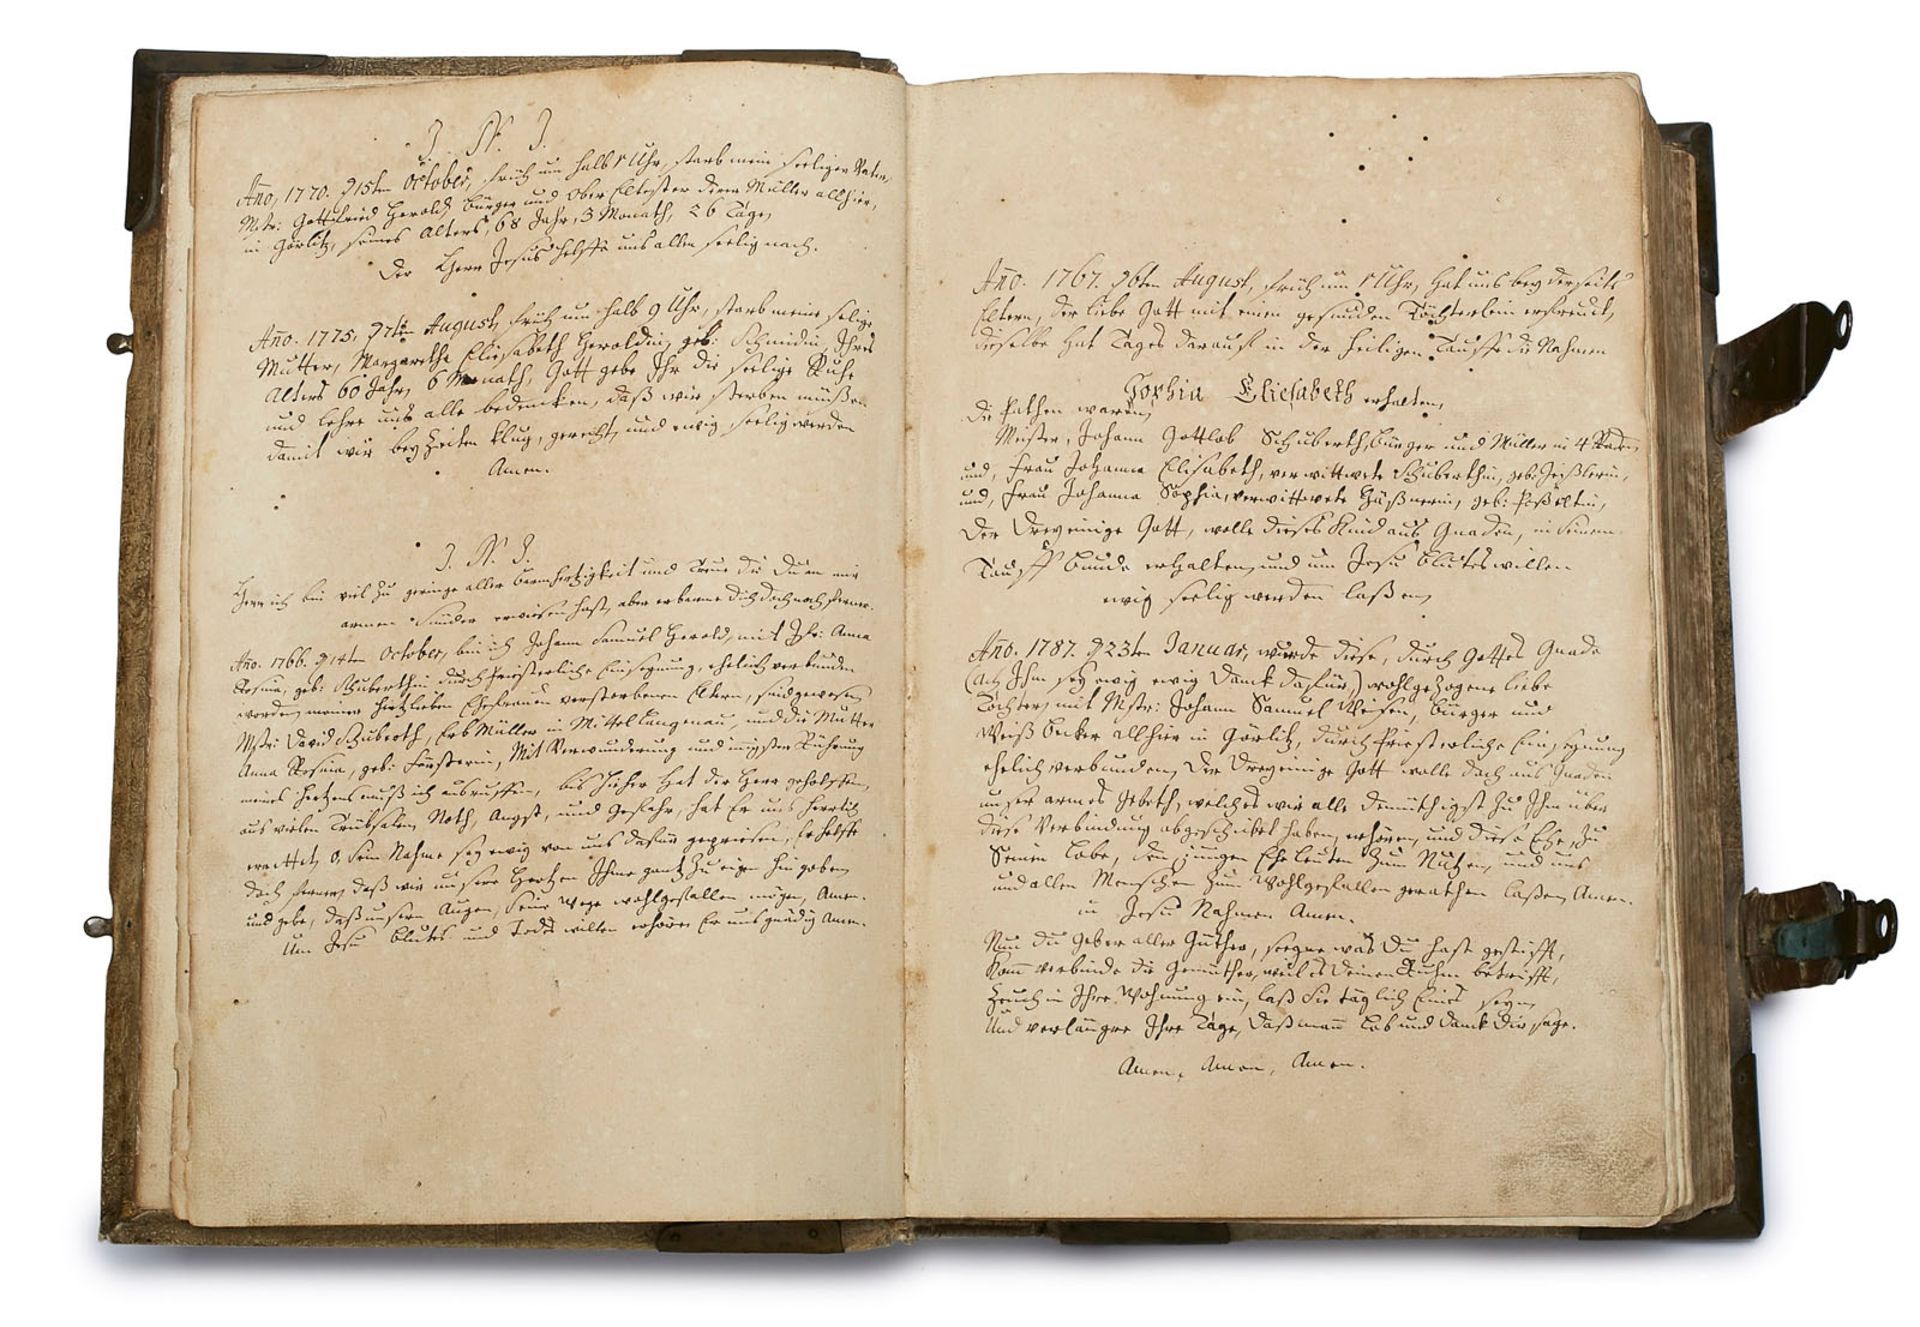 J. N. J.
Año, 1770. d 15ten October, früh um halb 1 Uhr, starb mein seeliger Vater,
Mstr: Gottfried Herold Bürger und Ober Eltester derer Müller allhier,
in Görlitz, seines Alters, 68 Jahr, 3 Monath, 26 Tage,
Der Herr Jesus helffe uns allen seelig nach.
Año. 1775, d 7ten August, früh um halb 9 Uhr, starb meine selige
Mutter, Margaretha Eliesabeth Heroldin, geb: Schmidin Ihres
Alters 60 Jahr, 6 Monath, Gott gebe Ihr die seelige Ruhe
und lehre uns alle bedencken, daß wir sterben müßen
damit wir bey Zeiten klug, gerecht, und ewig seelig werden
Amen.
J. N. J.
Herr ich bin viel zu geringe aller Barmhertzigkeit und Treue die Du an mir
armen Sünder erwiesen hast, aber erbarme dich doch noch ferner.
Año. 1766. d 14ten October, bin ich Johann Samuel Herold, mit Jfr: Anna
Rosina, geb: Schuberthin durch Priesterliche Einsegnung, ehelich verbunden
worden, meiner hertzlieben Ehefrauen verstorbenen Eltern, sind gewesen
Mstr: David Schuberth, Erb Müller in Mittel Langenau, und die Mutter
Anna Rosina, geb: Försterin, Mit Verwunderung und innigster Rührung
meines Hertzens muß ich ausruffen, bis hieher hat der Herr geholffen,
aus vielen Trübsalen, Noth, Angst, und Gefahr, hat Er uns herrlich
errettet, O, Sein Nahme sey ewig von uns dafür gepriesen, Er helffe
doch ferner, daß wir unsere Hertzen Ihme gantz zu eigen hingeben
und gebe, daß unsern Augen, seine Wege wohlgefallen mögen, Amen.
Um Jesu Blutes und Todes willen erhöre Er uns gnädig Amen.
Año. 1767. d 6ten August, früh um 1 Uhr, hat uns beyderseits
Eltern, der liebe Gott mit einen gesunden Töchterlein erfreut,
dieselbe hat Tages darauf in der heiligen Tauffe die Nahmen
Sophia Eliesabeth erhalten,
die Pathen waren,
Meister, Johann Gottlob Schuberth, Bürger und Müller in 4 Raden,
und, Frau Johanna Elisabeth, verwittwete Schuberthin, geb:
und, Frau Johanna Sophia, verwittwete geb:
Der Dreyeinige Gott, wolle dieses Kind aus Gnaden, in seinem
Tauff Bunde erhalten, und um Jesu Blutes willen
ewig seelig werden laßen,
Año. 1787. d 23ten Januar, wurde diese, durch Gottes Gnade
(Ach Ihm sey ewig ewig Danck dafür,) wohlgezogene liebe
Tochter, mit Mstr: Johann Samuel Bürger und
Weiß Becker allhier in Görlitz, durch Priesterliche Einsegnung
ehelich verbunden, Der Dreyeinige Gott wolle doch aus Gnaden
unser armes Gebeth, welches wir alle demüthigst zu Ihm über
diese Verbindung abgeschikt haben, erhören, und diese Ehe, zu
Seinen Lobe, den jungen Eheleuten zum Nutzen, und uns
und allen Menschen zum Wohlgefallen gerathen laßen, Amen.
in Jesu Nahmen Amen.
Nun du Geber aller Güther, seegne was Du hast gestifft,
Kom verbinde die Gemüther, weil es deinen Ruhm betrifft,
Zeuch in Ihre Wohnung ein, laß Sie täglich Eines seyn,
Und verlängre Ihre Tage, daß mann Lob und Danck dir sage.
Amen, Amen, Amen.